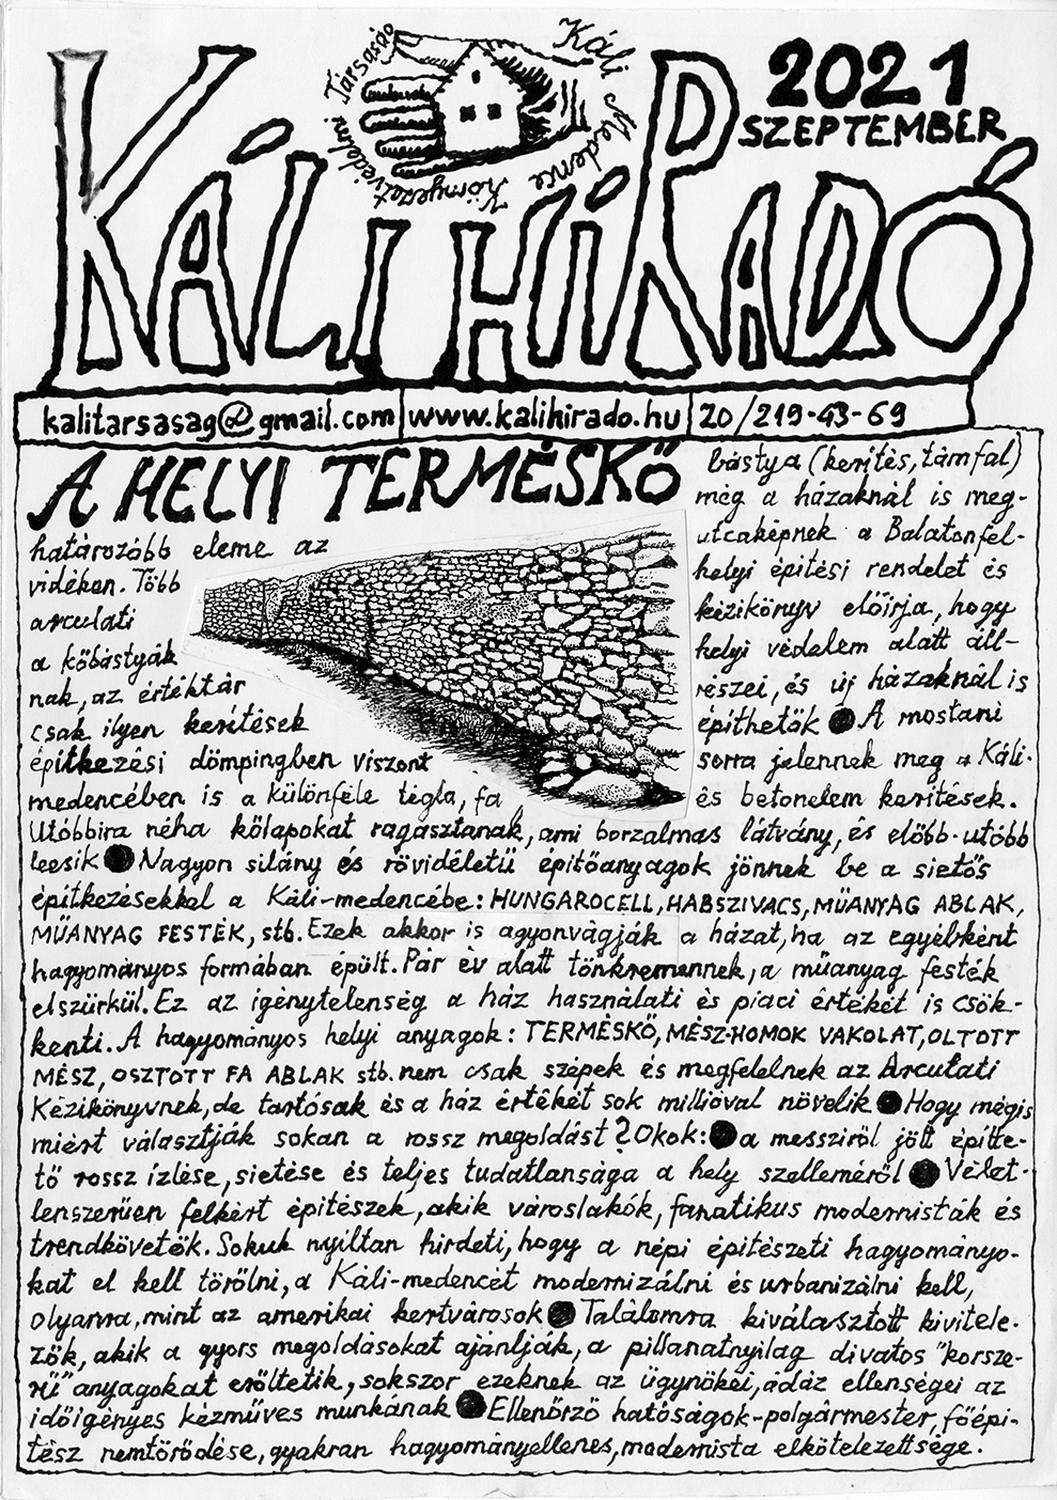 2021
SZEPTEMBER
Káli Medence Környezetvédelmi Társaság
KÁLI HÍRADÓ
kalitarsasag@gmail.com www.kalihirado.hu 20/219-43-69
A HELYI TERMÉSKŐ bástya (kerítés, támfal)
még a házaknál is meg-
határozóbb eleme az utcaképnek a Balatonfel-
vidéken. Több helyi építési rendelet és
arculati kézikönyv előírja, hogy
a kőbástyák helyi védelem alatt áll-
nak, az értéktár részei, és új házaknál is
csak ilyen kerítések építhetők ● A mostani
építkezési dömpingben viszont sorra jelennek meg a Káli-
medencében is a különféle tégla, fa és betonelem kerítések.
Utóbbira néha kőlapokat ragasztanak, ami borzalmas látvány, és előbb-utóbb
leesik ● Nagyon silány és rövidéletű építőanyagok jönnek be a sietős
építkezésekkel a Káli-medencébe: HUNGAROCELL, HABSZIVACS, MŰANYAG ABLAK,
MŰANYAG FESTÉK, stb. Ezek akkor is agyonvágják a házat, ha az egyébként
hagyományos formában épült. Pár év alatt tönkremennek, a műanyag festék
elszürkül. Ez az igénytelenség a ház használati és piaci értékét is csök-
kenti. A hagyományos helyi anyagok: TERMÉSKŐ, MÉSZ-HOMOK VAKOLAT, OLTOTT
MÉSZ, OSZTOTT FA ABLAK stb. nem csak szépek és megfelelnek az Arculati
Kézikönyvnek, de tartósak és a ház értékét sok millióval növelik ● Hogy mégis
miért választják sokan a rossz megoldást? Okok: ● a messziről jött építte-
tő rossz ízlése, sietése és teljes tudatlansága a hely szelleméről ● Vélet-
lenszerűen felkért építészek, akik városlakók, fanatikus modernisták és
trendkövetők. Sokuk nyíltan hirdeti, hogy a népi építészeti hagyományo-
kat el kell törölni, a Káli-medencét modernizálni és urbanizálni kell,
olyanra, mint az amerikai kertvárosok ● Találomra kiválasztott kivitele-
zők, akik a gyors megoldásokat ajánlják, a pillanatnyilag divatos "korsze-
rű" anyagokat erőltetik, sokszor ezeknek az ügynökei, ádáz ellenségei az
időigényes kézműves munkának ● Ellenőrző hatóságok-polgármester, főépí-
tész nemtörődése, gyakran hagyományellenes, modernista elkötelezettsége.